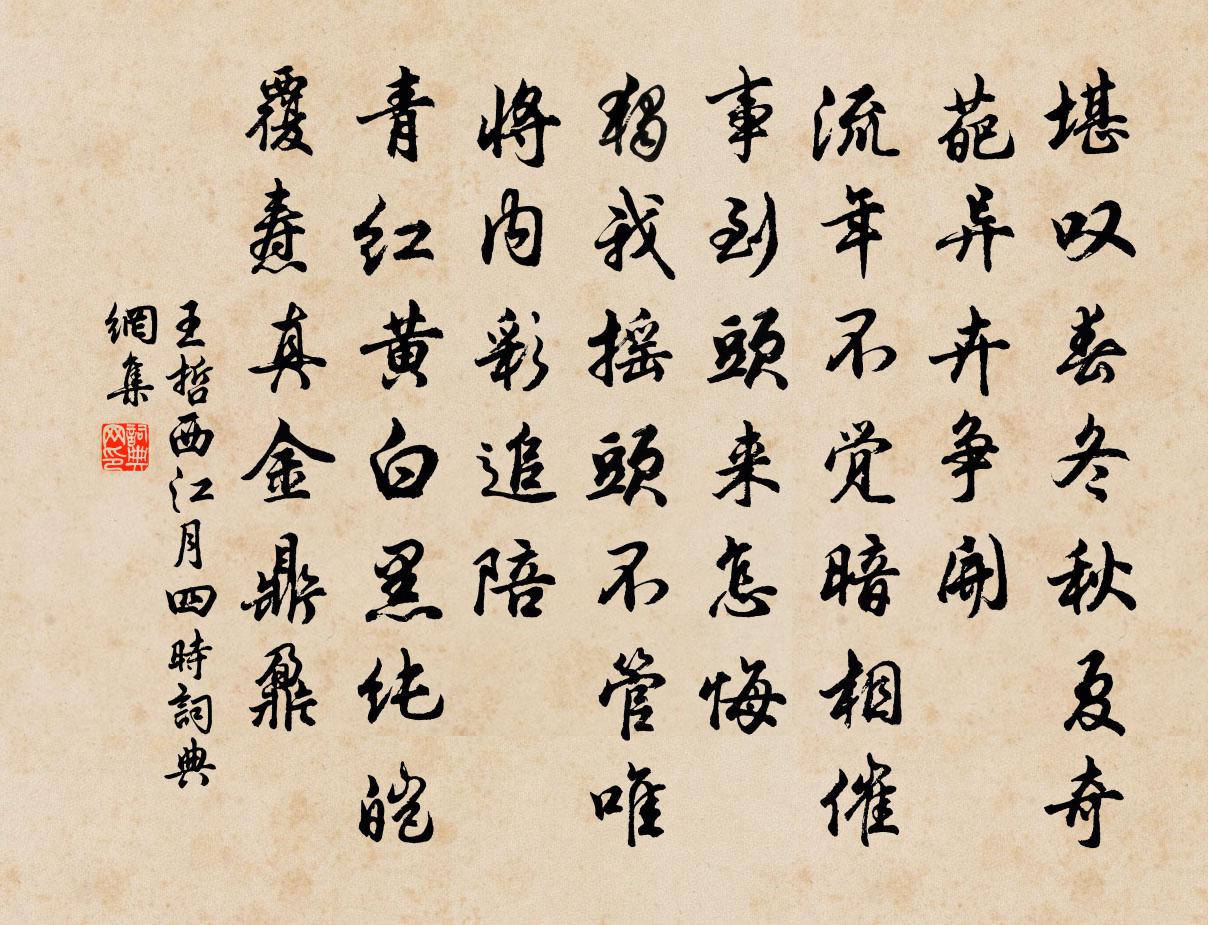 堪叹春冬秋夏奇
葩异卉争開
流年不觉暗相催
事到頭来怎悔
獨我摇頭不管唯
將内彩追陪
青红黄白黑纯皑
覆焘真金鼎鼐
王哲西江月四時詞典
網集
詞典网印